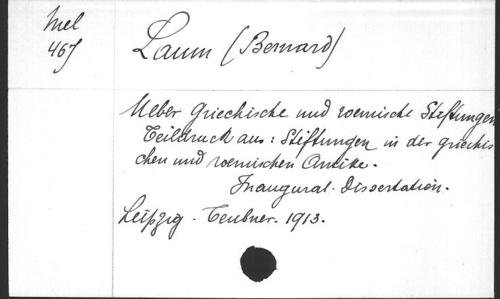 Mel
467
Laum (Bernard)
Ueber Griechische und roemische Stiftungen
Teildruck aus: Stiftungen in der griechis
chen und roemischen Antike.
Inaugural-Dissertation.
Leipzig. Teubner. 1913.